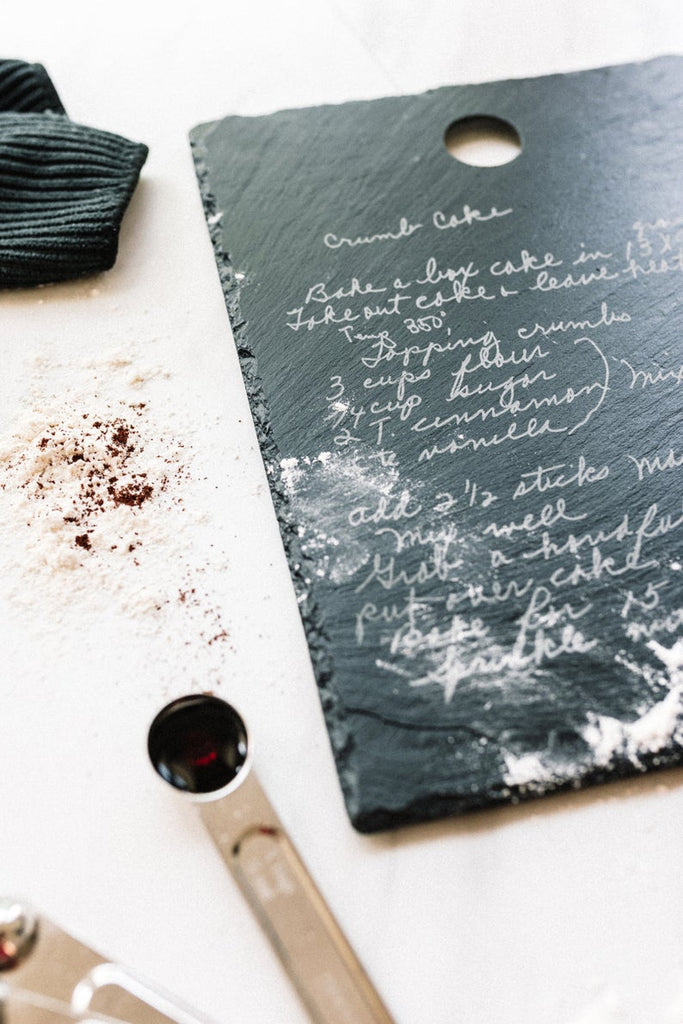 Crumb Cake
Bake a box cake in 13 x
Take out cake & leave heat
Temp 350°
Topping crumbs
3 cups flour
3/4 cup sugar
2 T. cinnamon mix
vanilla
add 2 1/2 sticks
Mix well
Grab a handful
put over cake
Bake for 15
Sprinkle